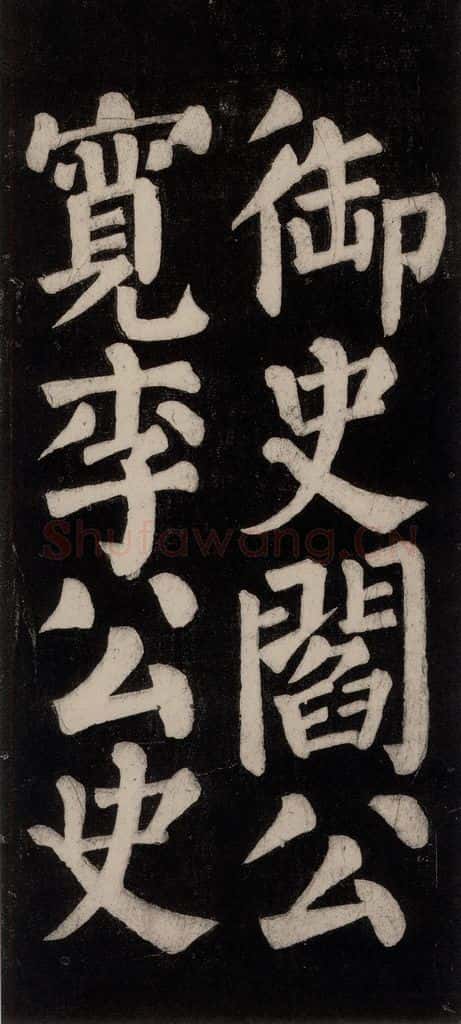 御史閻公
寛李公史
Shufawang.CN